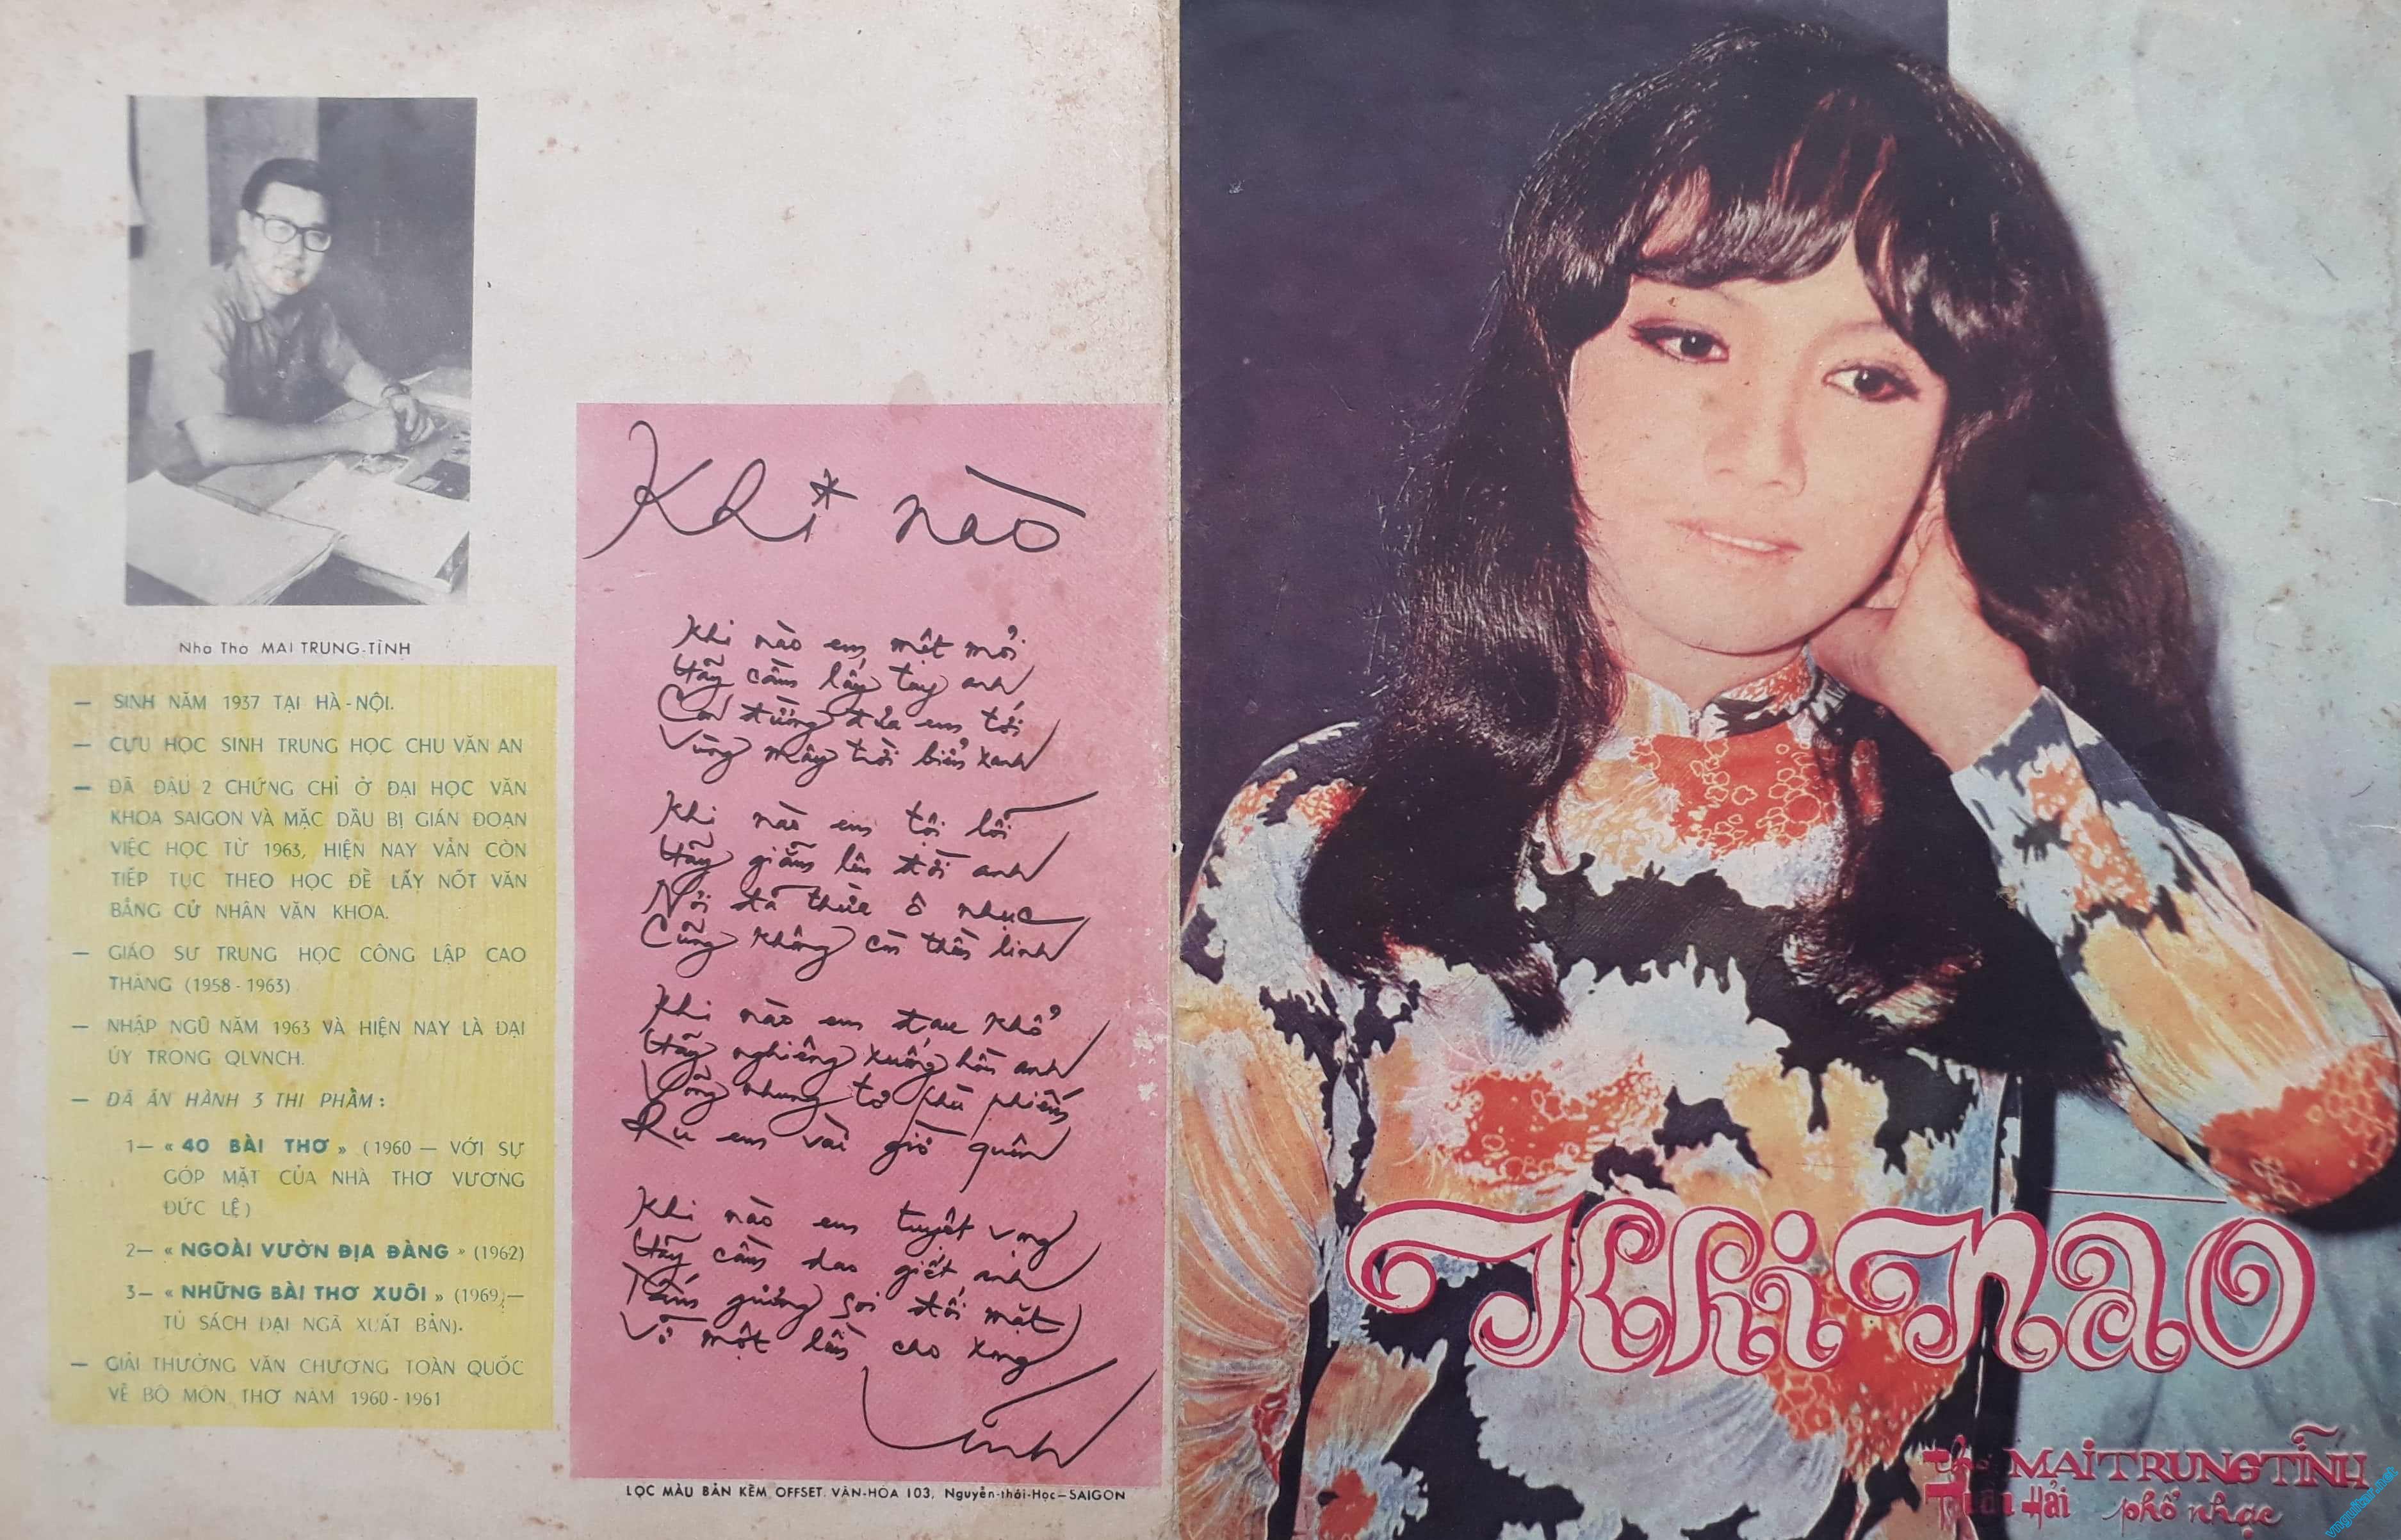 Nhà Thơ MAI TRUNG-TĨNH
— SINH NĂM 1937 TẠI HÀ-NỘI.
— CỰU HỌC SINH TRUNG HỌC CHU VĂN AN
— ĐÃ ĐẬU 2 CHỨNG CHỈ Ở ĐẠI HỌC VĂN
KHOA SAIGON VÀ MẶC DẦU BỊ GIÁN ĐOẠN
VIỆC HỌC TỪ 1963, HIỆN NAY VẪN CÒN
TIẾP TỤC THEO HỌC ĐỂ LẤY NỐT VĂN
BẰNG CỬ NHÂN VĂN KHOA.
— GIÁO SƯ TRUNG HỌC CÔNG LẬP CAO
THẮNG (1958 - 1963)
— NHẬP NGŨ NĂM 1963 VÀ HIỆN NAY LÀ ĐẠI
ÚY TRONG QLVNCH.
— ĐÃ ẤN HÀNH 3 THI PHẨM :
1— « 40 BÀI THƠ » (1960 — VỚI SỰ
GÓP MẶT CỦA NHÀ THƠ VƯƠNG
ĐỨC LỆ)
2— « NGOÀI VƯỜN ĐỊA ĐÀNG » (1962)
3— « NHỮNG BÀI THƠ XUÔI » (1969 —
TỦ SÁCH ĐẠI NGÃ XUẤT BẢN).
— GIẢI THƯỞNG VĂN CHƯƠNG TOÀN QUỐC
VỀ BỘ MÔN THƠ NĂM 1960 - 1961
Khi nào
Khi nào em mệt mỏi
Hãy cầm lấy tay anh
Con đường đưa em tới
Vùng mây trời biển xanh
Khi nào em tội lỗi
Hãy giẫm lên đời anh
Nơi đã thừa ô nhục
Cũng không còn thần linh
Khi nào em đau khổ
Hãy nghiêng xuống hồn anh
Võng nhung tơ phù phiếm
Ru em vài giờ quên
Khi nào em tuyệt vọng
Hãy cầm dao giết anh
Tấm gương soi đối mặt
Vỡ một lần cho xong
LỌC MÀU BẢN KẼM OFFSET. VĂN-HÓA 103, Nguyễn-thái-Học—SAIGON
Khi Nào
thơ MAI TRUNG TĨNH
Hải phổ nhạc
vmguitar.net